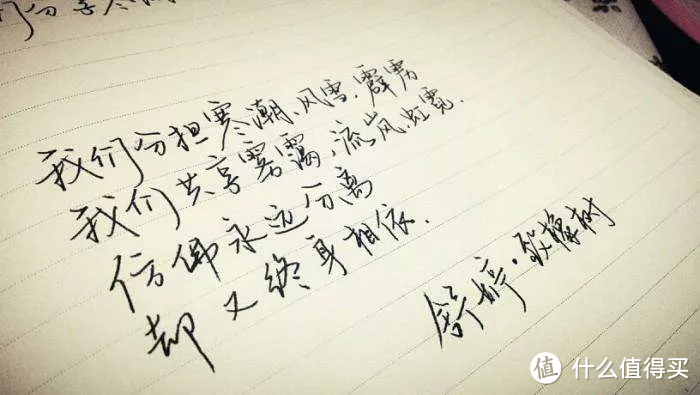 我们分担寒潮、风雷、霹雳
我们共享雾霭、流岚、虹霓.
仿佛永远分离
却又终身相依.
舒婷·致橡树
值 什么值得买